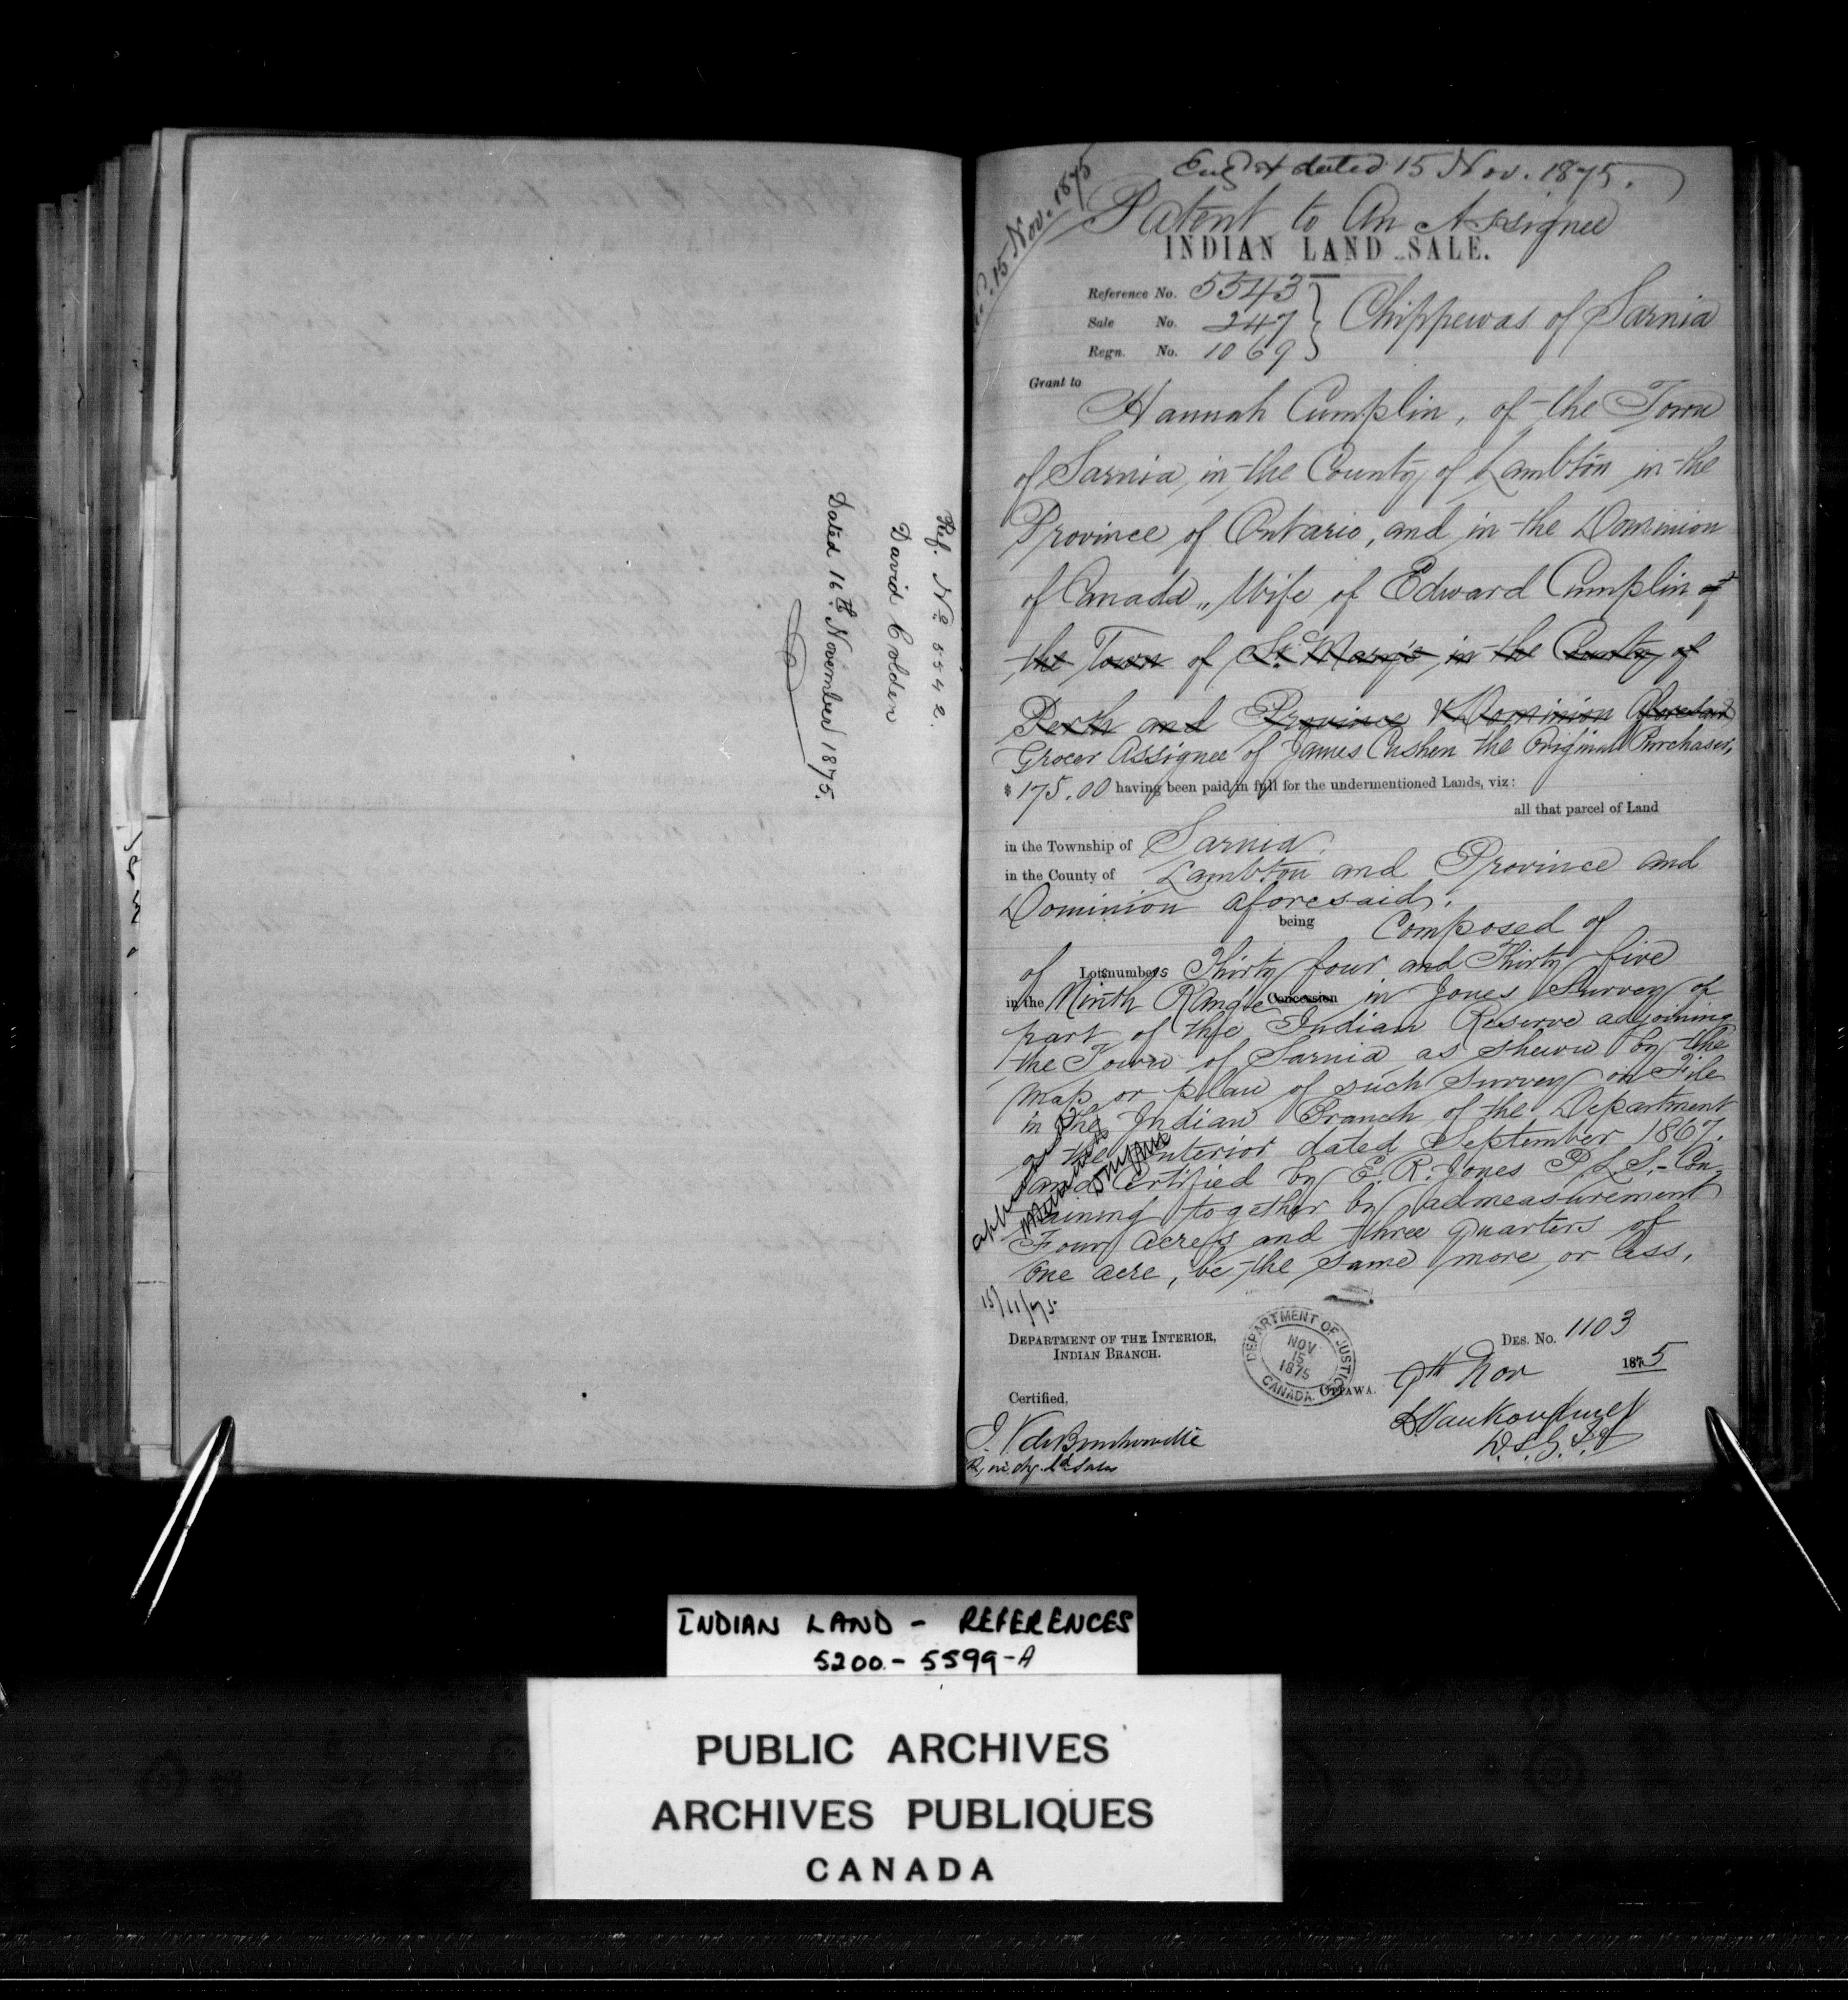 Ref. No. 5542.
David Colden
Dated 16th November 1875.
15 Nov. 1875
Eng'd & dated 15 Nov. 1875.
Patent to An Assignee
INDIAN LAND SALE.
Reference No. 5543
Sale No. 247
Regn. No. 1069
Chippewas of Sarnia
Grant to
Hannah Cumplin, of the Town
of Sarnia, in the County of Lambton in the
Province of Ontario, and in the Dominion
of Canada, Wife of Edward Cumplin of
the Town of St. Mary's in the County of
Perth and Province & Dominion aforesaid
Grocer Assignee of James Cushen the Original Purchaser,
$175.00 having been paid in full for the undermentioned Lands, viz:
all that parcel of Land
in the Township of Sarnia.
in the County of Lambton and Province and
Dominion aforesaid.
being Composed of
of Lots numbers Thirty four and Thirty five
in the Ninth Range Concession in Jones Survey of
part of the Indian Reserve adjoining
the Town of Sarnia as shewn by the
map or plan of such Survey on File
in the Indian Branch of the Department
of the Interior dated September 1867.
and Certified by E. R. Jones P.L.S. - Con-
taining together by admeasurement
Four acres and three quarters of
One acre, be the same more or less.
15/11/75
DEPARTMENT OF THE INTERIOR,
INDIAN BRANCH.
DEPARTMENT OF JUSTICE
NOV
15
1875
CANADA
DES. No. 1103
OTTAWA. 9th Nov 1875
Certified,
L Vankoughnet
D.S.G.I.A
INDIAN LAND - REFERENCES
5200 - 5599-A
PUBLIC ARCHIVES
ARCHIVES PUBLIQUES
CANADA